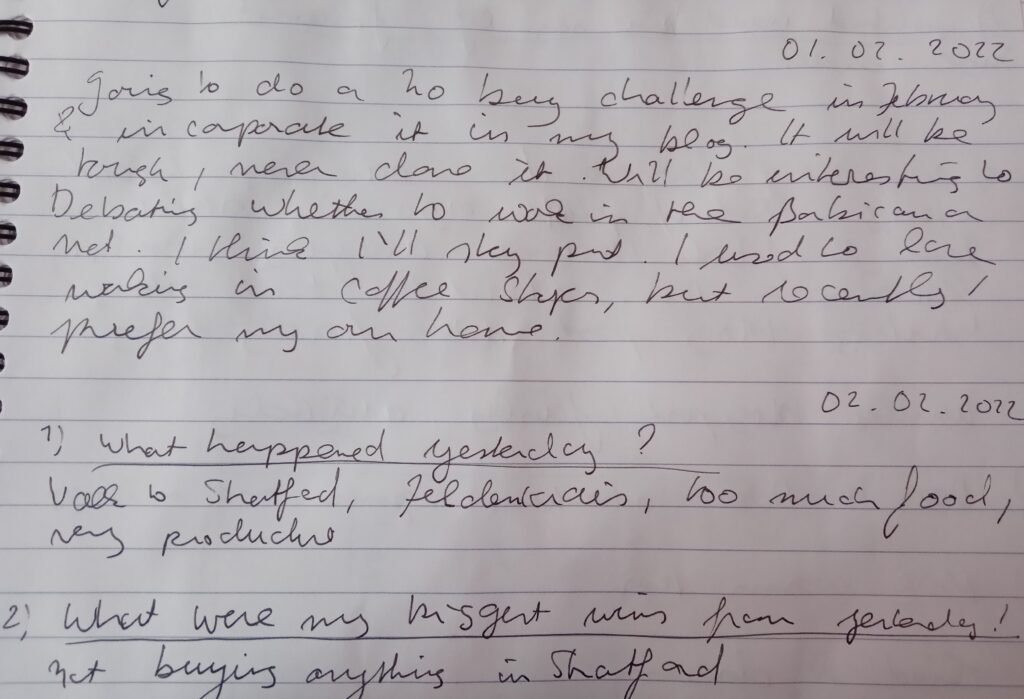 01.02.2022
Going to do a no buy challenge in February
& incorporate it in my blog. It will be
tough, never done it. Will be interesting to
Debating whether to work in the Barbican or
not. I think I'll stay put. I used to love
working in coffee shops, but recently I
prefer my own home.
02.02.2022
1) What happened yesterday?
Walk to Stratford, Feldenkrais, too much food,
very productive
2) What were my biggest wins from yesterday!
Not buying anything in Stratford